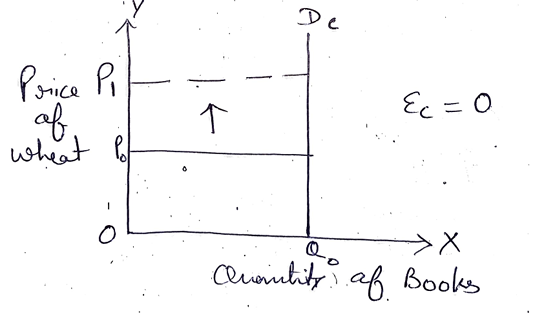 Y
Dc
Price
of
wheat
P1
Ec = 0
P0
O
Q0
X
Quantity of Books